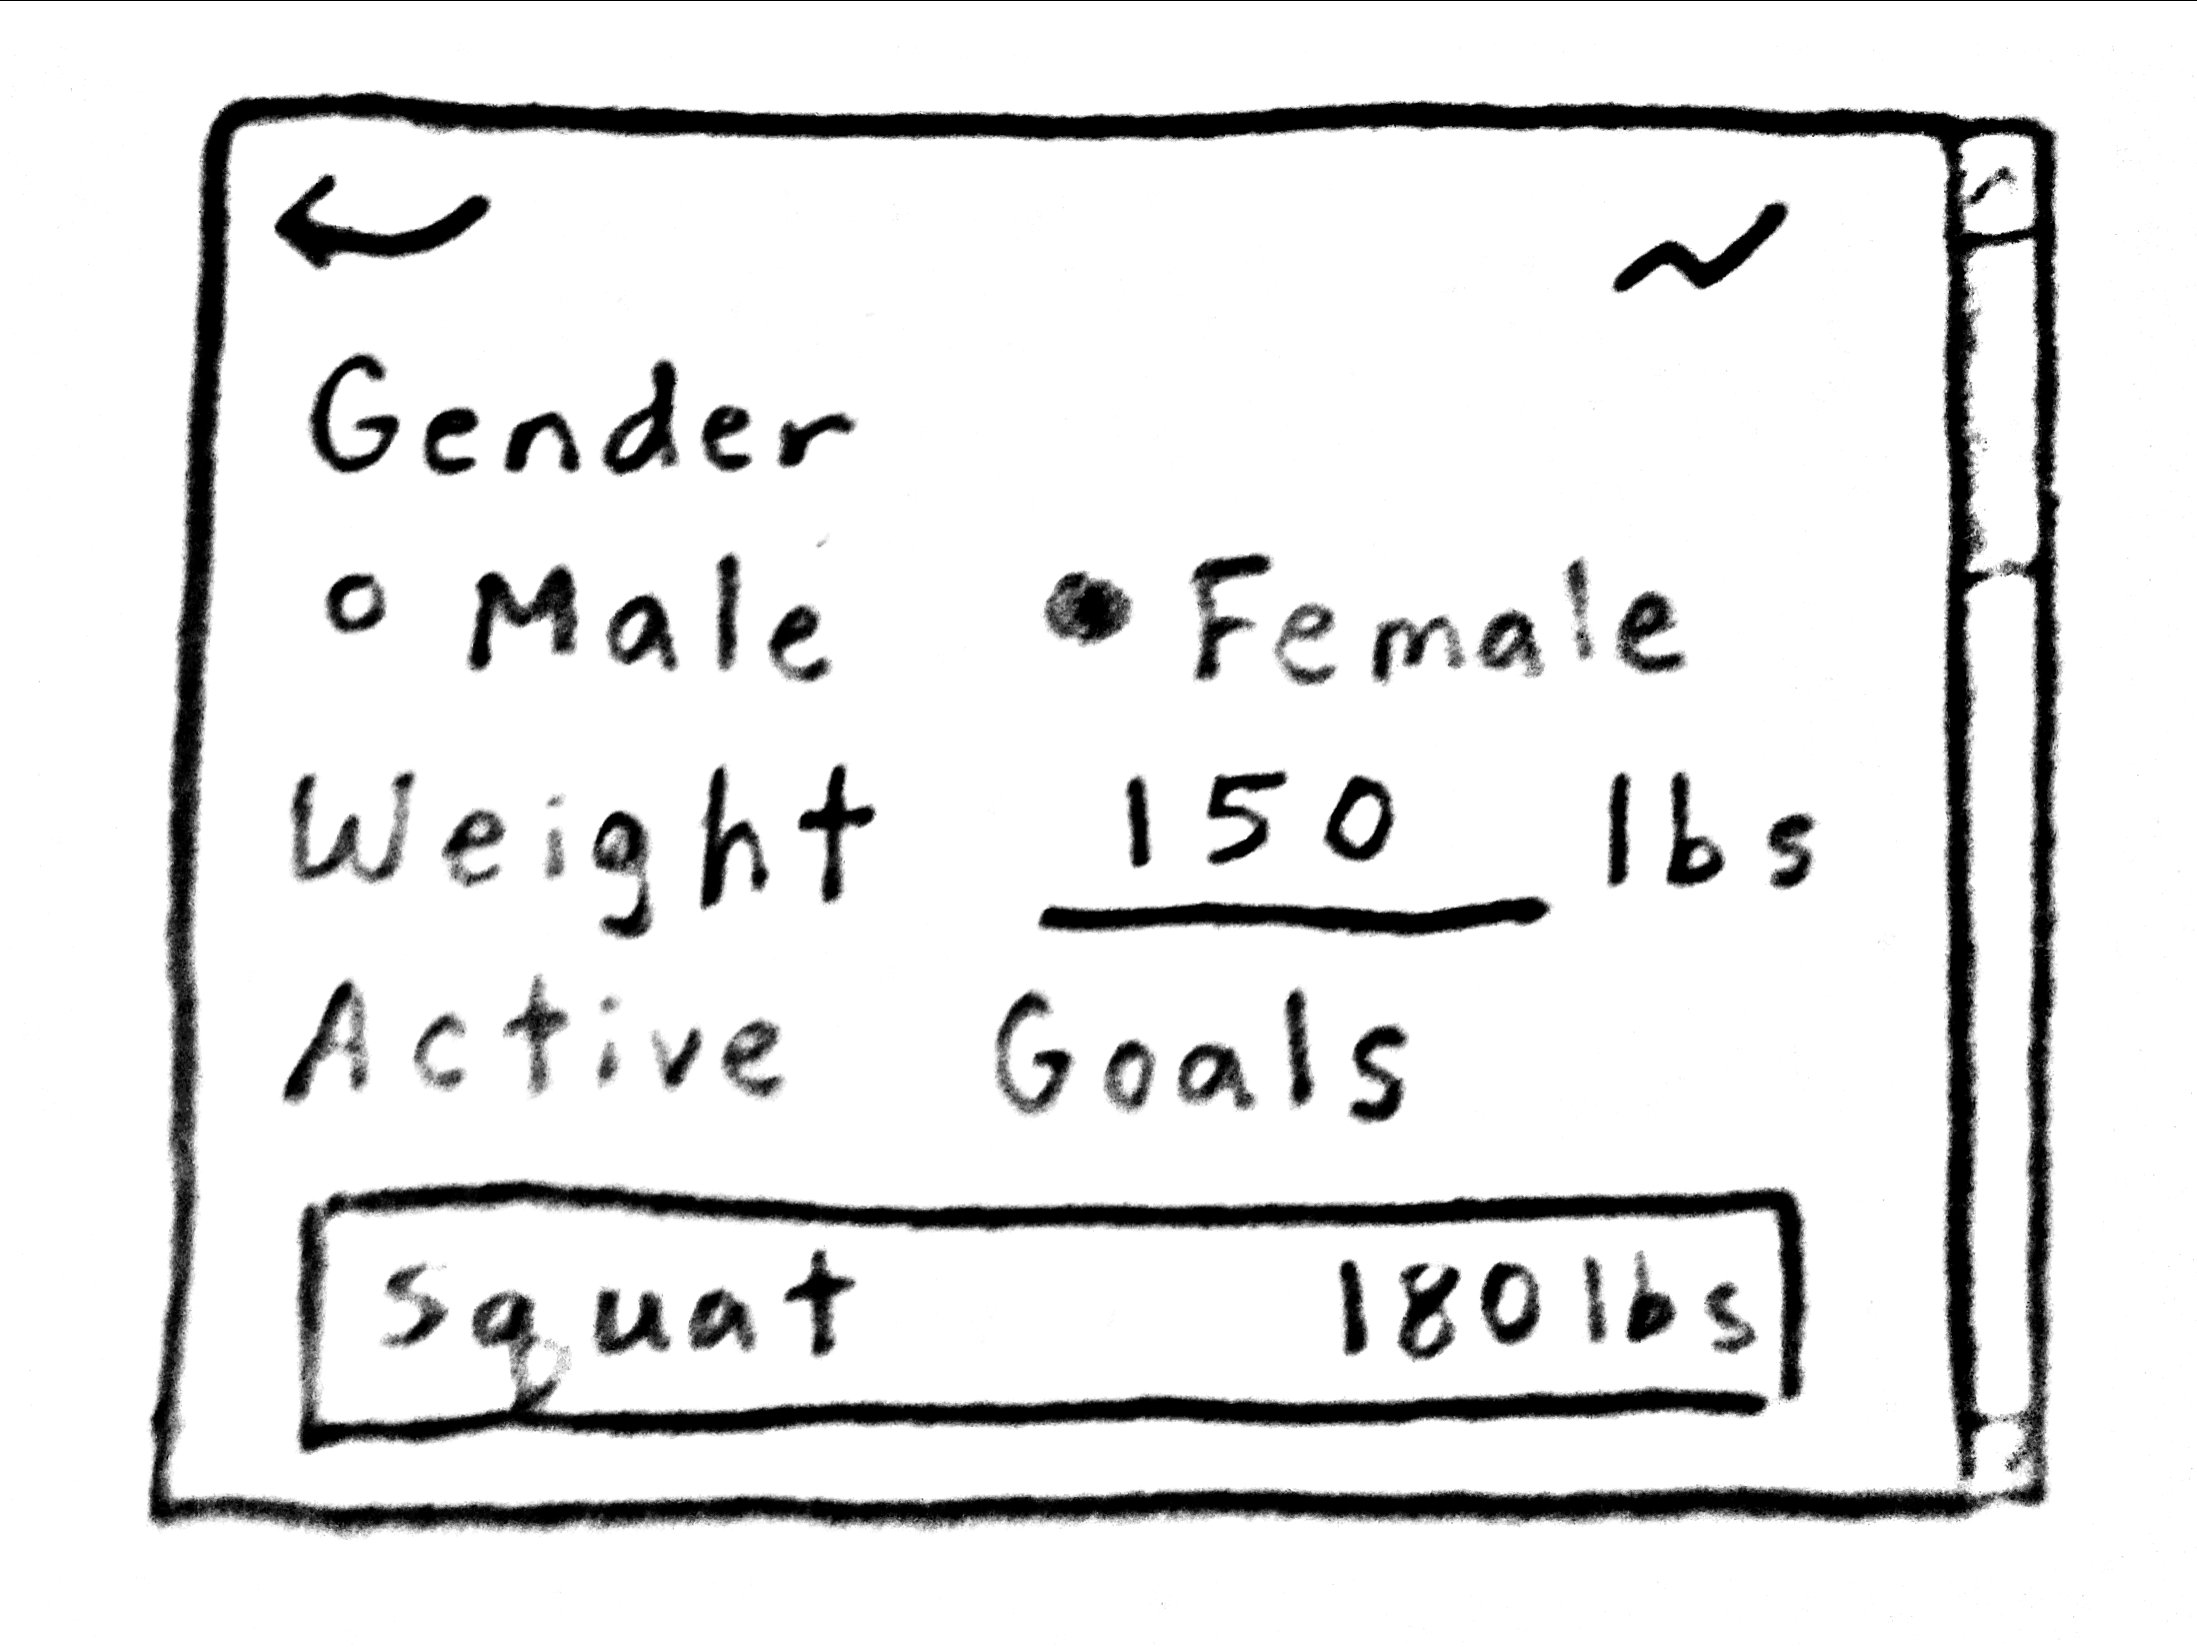 Gender
Male Female
Weight 150 lbs
Active Goals
Squat 180lbs